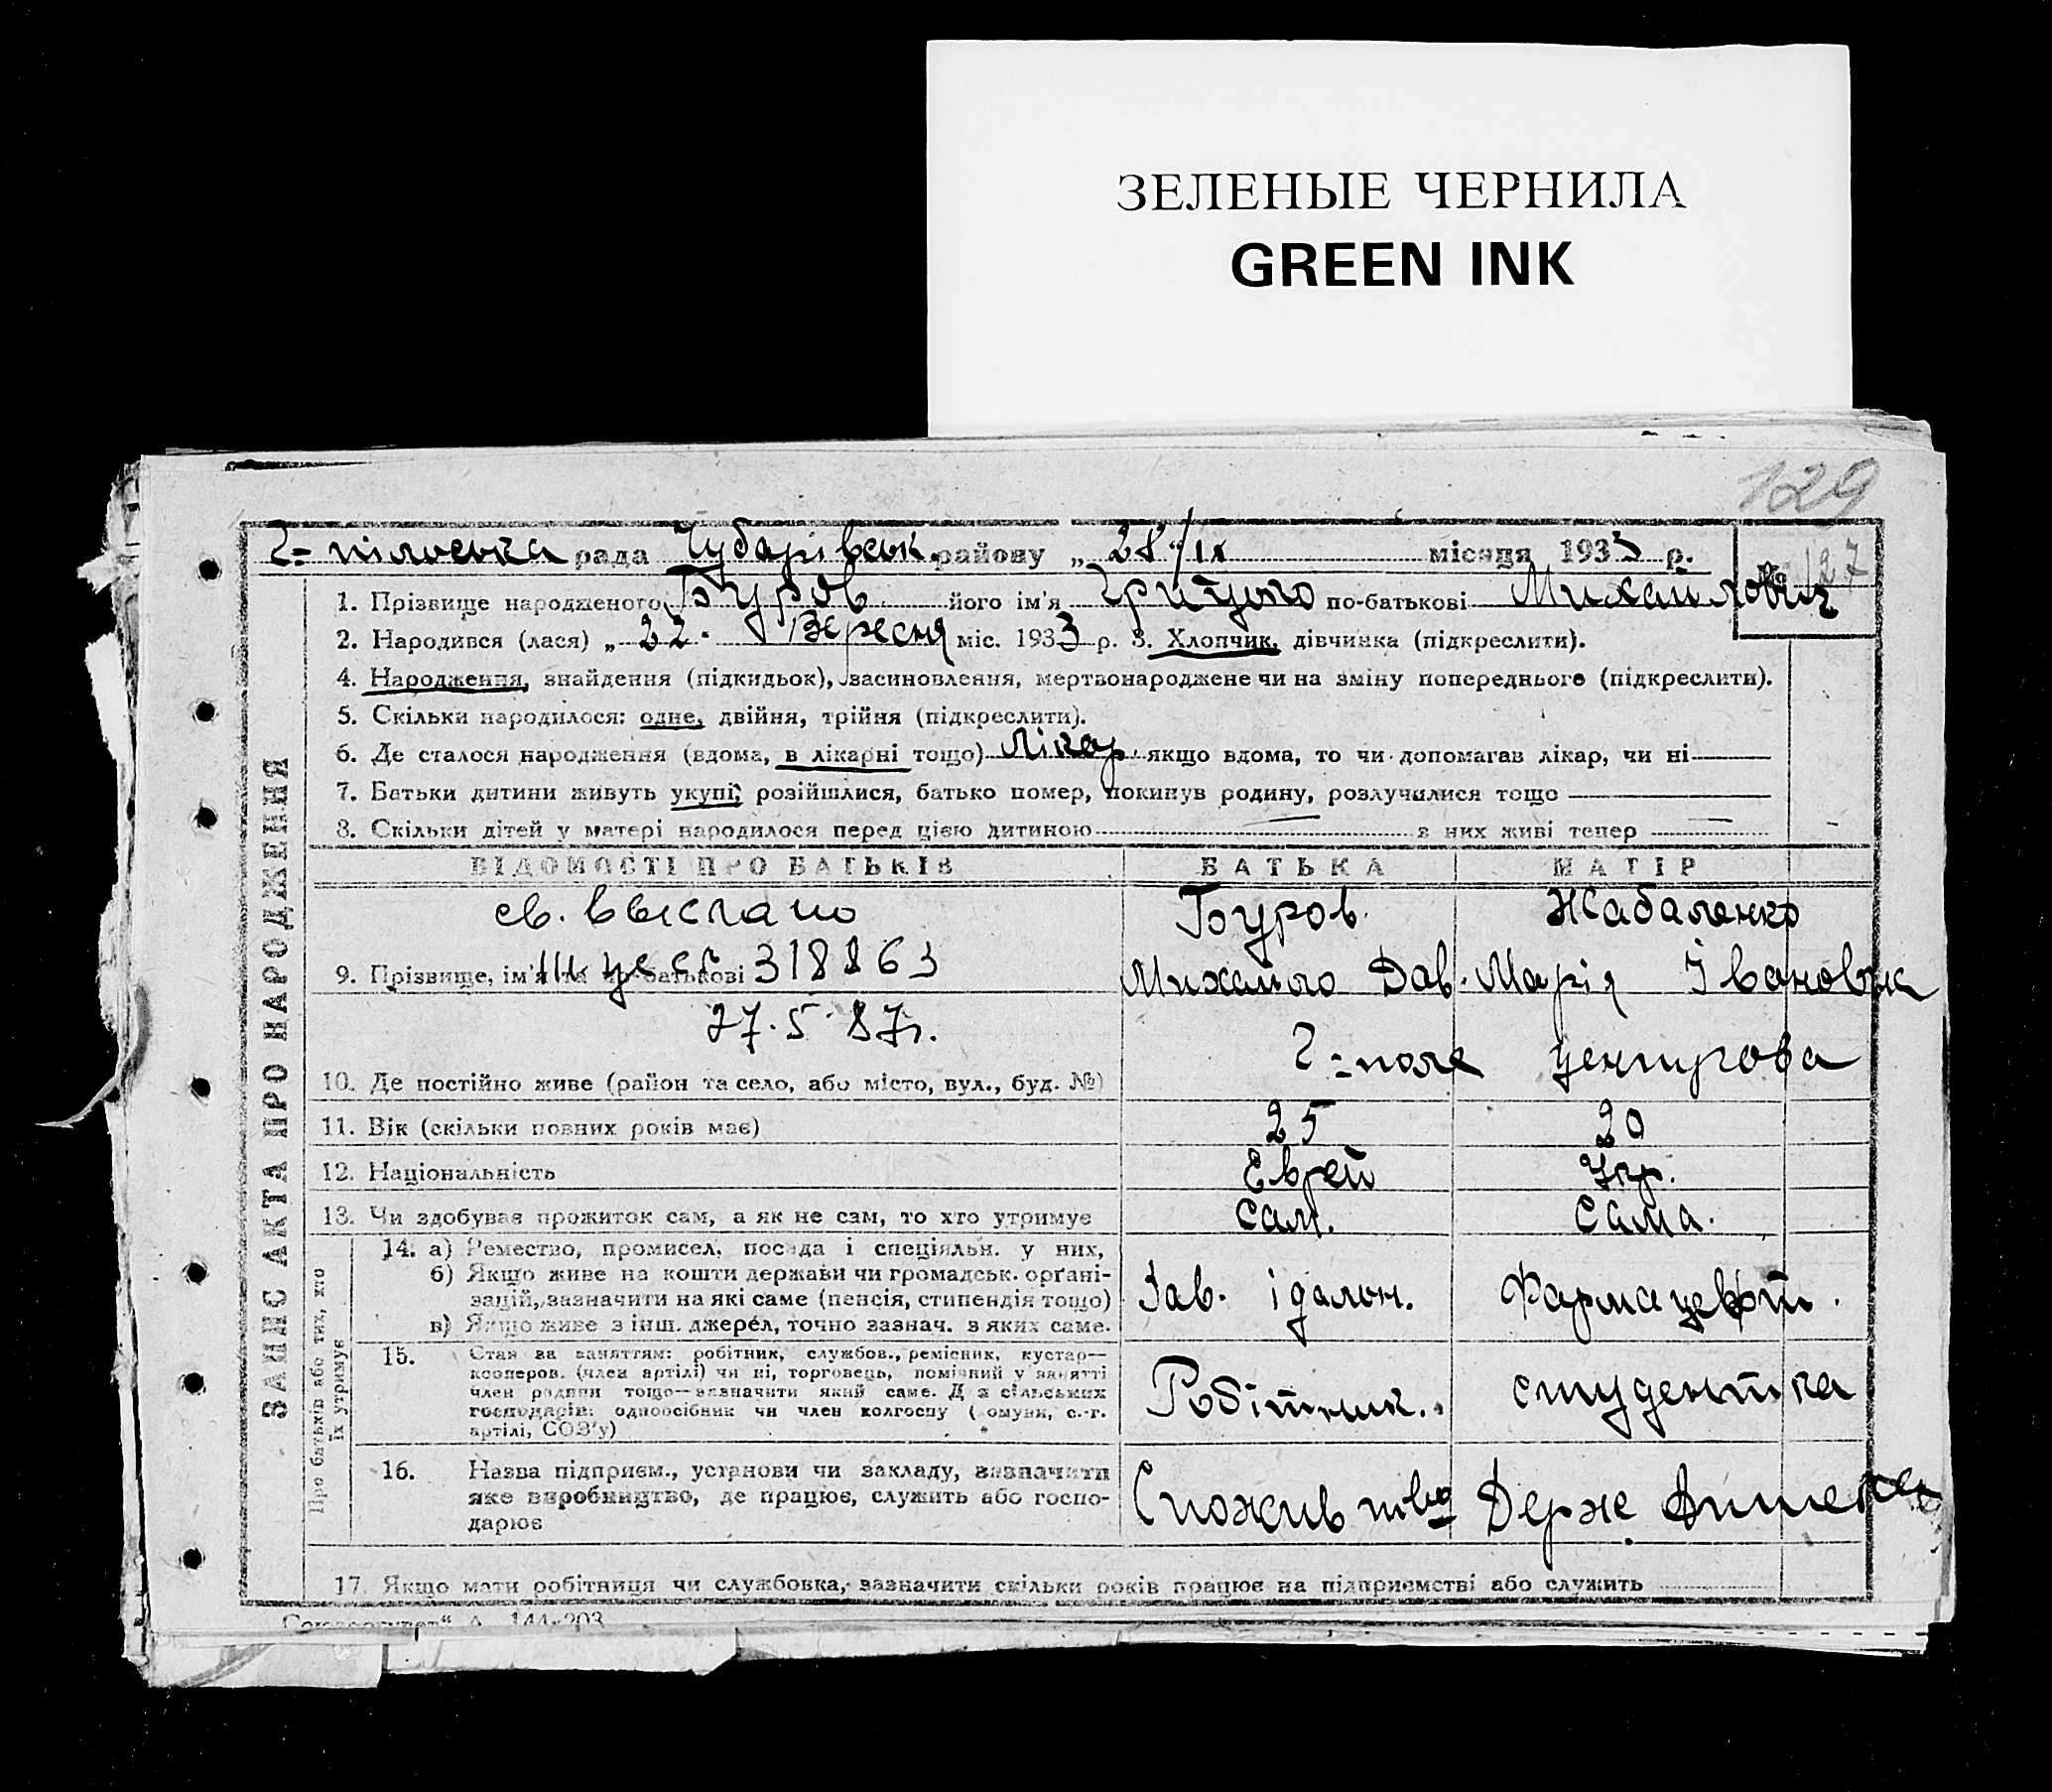 ЗЕЛЕНЫЕ ЧЕРНИЛА
GREEN INK
129
Г=пільська рада Чубарівськ. району „28“/ІХ місяця 1933 р.
№ 127
1. Прізвище народженого Буров його ім'я Грицько по-батькові Михайлович
2. Народився (лася) „ 22. Вересня міс. 1933 р. 3. Хлопчик, дівчинка (підкреслити).
4. Народження, знайдення (підкидьок), засиновлення, мертвонароджене чи на зміну попереднього (підкреслити).
5. Скільки народилося: одне, двійня, трійня (підкреслити).
6. Де сталося народження (вдома, в лікарні тощо) лікар. якщо вдома, то чи допомагав лікар, чи ні
7. Батьки дитини живуть укупі, розійшлися, батько помер, покинув родину, розлучилися тощо
8. Скільки дітей у матері народилося перед цією дитиною — з них живі тепер —
ЗАПИС АКТА ПРО НАРОДЖЕННЯ
ВІДОМОСТІ ПРО БАТЬКІВ БАТЬКА МАТІР
св. выслано Буров. Жабаленко
9. Прізвище, ім'я та по-батькові 318863 Михайло Дав. Марія Івановна
27.5.87г.
10. Де постійно живе (район та село, або місто, вул., буд. №) Г=поле
11. Вік (скільки повних років має) 25 20
12. Національність Еврей Укр.
13. Чи здобуває прожиток сам, а як не сам, то хто утримує Сам. Сама.
Про батьків або тих, хто їх утримує
14. а) Ремество, промисел, посада і спеціяльн. у них,
б) Якщо живе на кошти держави чи громадськ. орґані-
зацій, зазначити на які саме (пенсія, стипендія тощо) Зав. їдальн. Фармацевт.
в) Якщо живе з інш. джерел, точно зазнач. з яких саме.
15. Стан за заняттям: робітник, службов., ремісник, кустар—
кооперов. (член артілі) чи ні, торговець, помічний у занятті
член родини тощо—зазначити який саме. Для сільських
господарів: одноосібник чи член колгоспу (комуни, с.-г.
артілі, СОЗ'у) Робітник. студентка
16. Назва підприєм., установи чи закладу, зазначити
яке виробництво, де працює, служить або госпо-
дарює Спожив тво Держ. Аптека
17. Якщо мати робітниця чи службовка, зазначити скільки років працює на підприємстві або служить
144-203